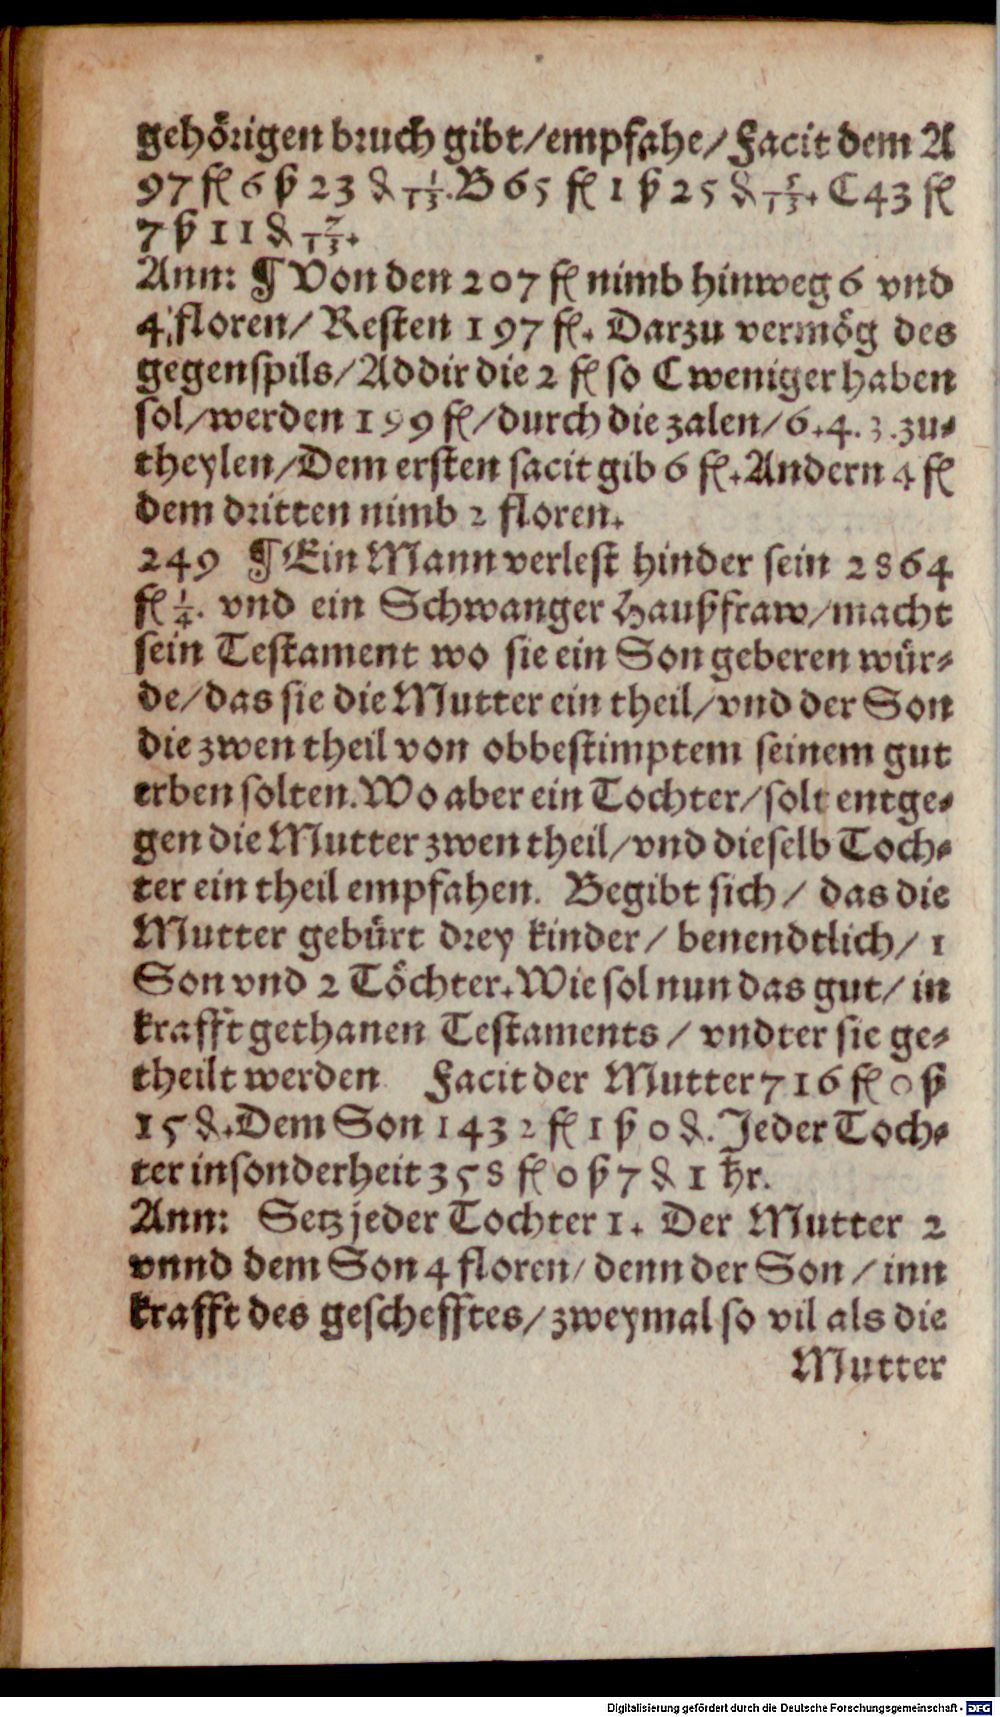 gehörigen bruch gibt/empfahe/Facit dem A
97 fl 6 ß 23 ₰ 1/13. B 65 fl 1 ß 25 ₰ 5/13. C 43 fl
7 ß 11 ₰ 7/13.
Ann: ¶ Von den 207 fl nimb hinweg 6 vnd
4 floren/ Resten 197 fl. Darzu vermög des
gegenspils/Addir die 2 fl so C weniger haben
sol/werden 199 fl/durch die zalen/6.4.3.zu-
theylen/Dem ersten facit gib 6 fl. Andern 4 fl
dem dritten nimb 2 floren.
249 ¶ Ein Mann verlest hinder sein 2864
fl 1/4. vnd ein Schwanger Haußfraw/macht
sein Testament wo sie ein Son geberen wür-
de/das sie die Mutter ein theil/vnd der Son
die zwen theil von obbestimptem seinem gut
erben solten. Wo aber ein Tochter/solt entge-
gen die Mutter zwen theil/vnd dieselb Toch-
ter ein theil empfahen. Begibt sich/ das die
Mutter gebürt drey kinder/ benendtlich/ 1
Son vnd 2 Töchter. Wie sol nun das gut/ in
krafft gethanen Testaments/ vndter sie ge-
theilt werden Facit der Mutter 716 fl 0 ß
15 ₰. Dem Son 1432 fl 1 ß 0 ₰. Jeder Toch-
ter insonderheit 358 fl 0 ß 7 ₰ 1 hr.
Ann: Setz jeder Tochter 1. Der Mutter 2
vnnd dem Son 4 floren/ denn der Son/ inn
krafft des geschefftes/ zweymal so vil als die
Mutter
Digitalisierung gefördert durch die Deutsche Forschungsgemeinschaft - DFG